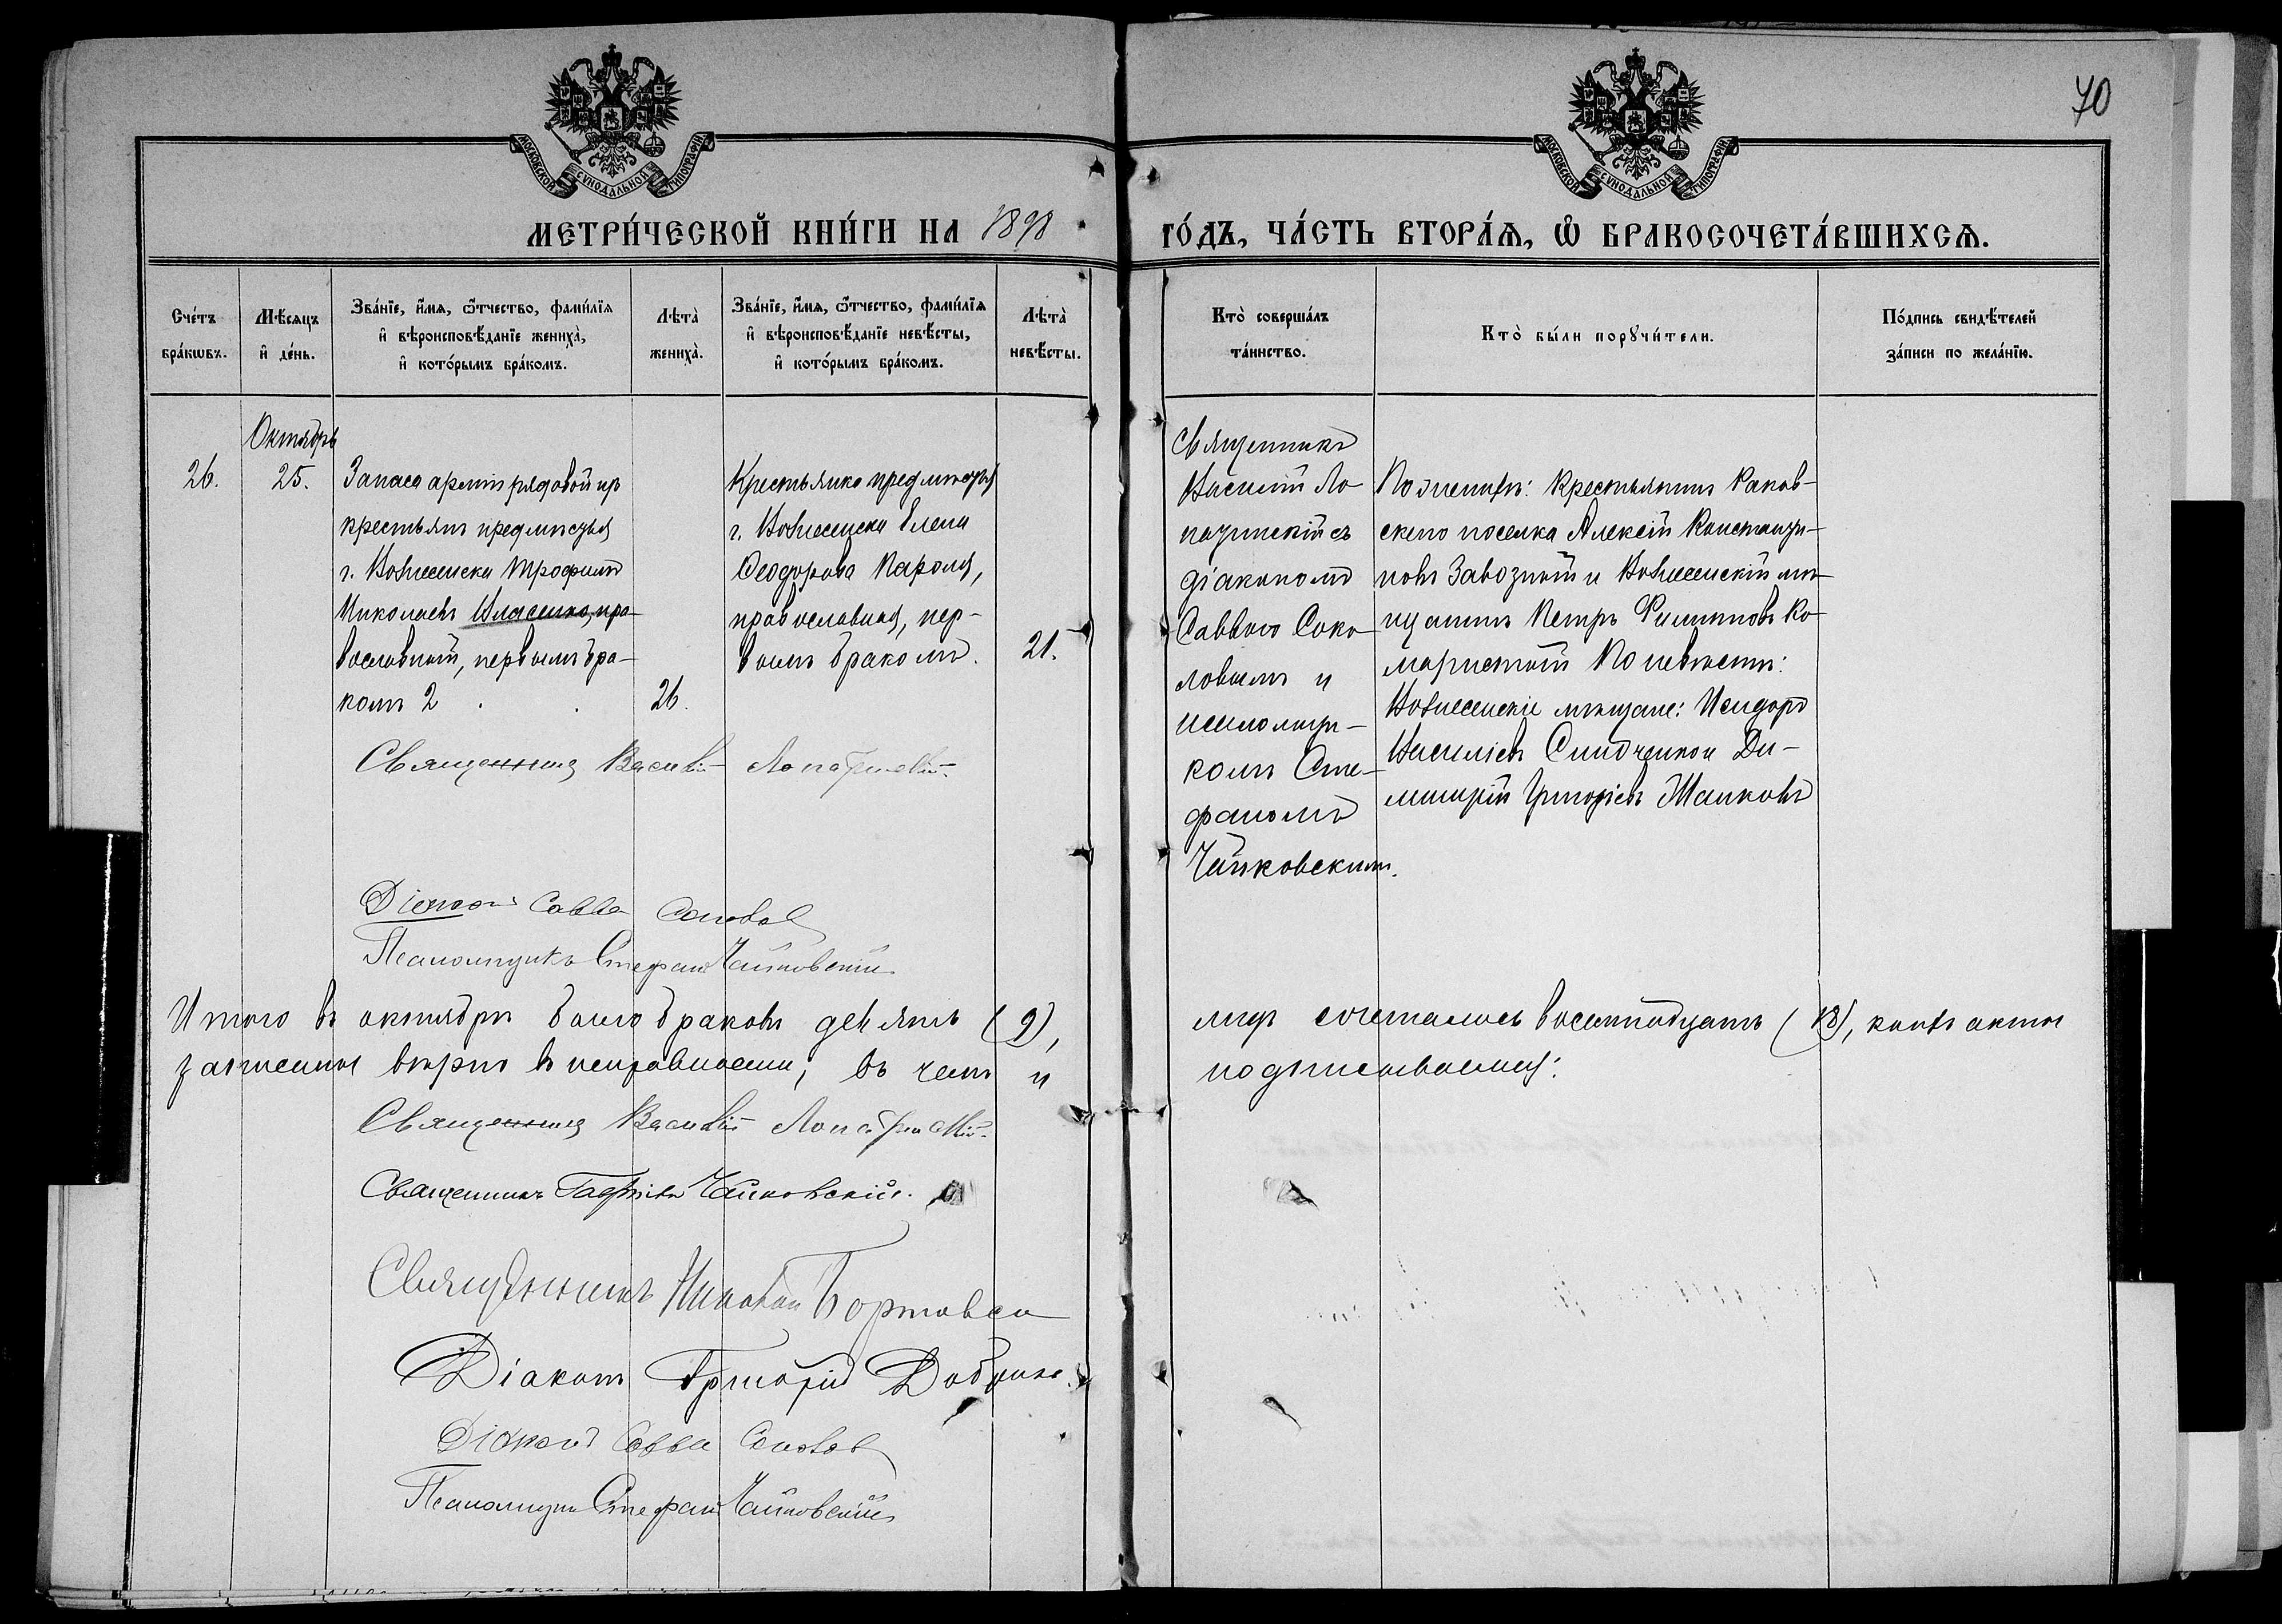 70
МОСКОВСКОЙ СѴНОДАЛЬНОЙ ТИПОГРАФІИ
МОСКОВСКОЙ СѴНОДАЛЬНОЙ ТИПОГРАФІИ
МЕТРИ́ЧЕСКОЙ КНИ́ГИ НА 1898
ГО́ДЪ, ЧА́СТЬ ВТОРА́Ѧ, Ѡ҆ БРАКОСОЧЕТА́ВШИХСѦ.
Сче́тъ
бра́кѡвъ.
Мѣ́сяцъ
и҆ де́нь.
Зва́нїе, и҆́мя, ѻ҆́тчество, фами́лїя
и҆ вѣроисповѣ́данїе жениха̀,
и҆ кото́рымъ бра́комъ.
Лѣта̀
жениха̀.
Зва́нїе, и҆́мя, ѻ҆́тчество, фами́лїя
и҆ вѣроисповѣ́данїе невѣ́сты,
и҆ кото́рымъ бра́комъ.
Лѣта̀
невѣ́сты.
Кто̀ соверша́лъ
та́инство.
Кто̀ бы́ли порꙋчи́тели.
По́дпись свидѣ́телей
за́писи по жела́нїю.
26.
Октябрь
25.
Запаса арміи рядовой изъ
крестьянъ предмѣстья
г. Вознесенска Трофимъ
Николаевъ Власенко, пра-
вославный, первымъ бра-
комъ
26.
Крестьянка предмѣстья
г. Вознесенска Елена
Ѳеодорова
православная, пер-
вымъ бракомъ.
21.
Священникъ
Василій Ло-
патинскій съ
діакономъ
Саввою Соко-
ловымъ и
псаломщи-
комъ Сте-
фаномъ
Чайковскимъ.
По женихѣ: Крестьянинъ Раков-
скаго поселка Алексѣй Константи-
новъ Завозный и Вознесенскій мѣ-
щанинъ Петръ Филипповъ
По невѣстѣ:
Вознесенскіе мѣщане: Исидоръ
Василіевъ и Ди-
митрій Григоріевъ
Священникъ Василій Лопатинскій.
Діаконъ Савва Соколов
Псаломщикъ Стефанъ Чайковскій
Итого въ октябрѣ было браковъ девять (9),
лицъ сочеталось восемнадцать (18), коихъ акты
записаны вѣрно въ исправности, въ чемъ и
подписываемся:
Священникъ Василій Лопатинскій.
Священникъ Гавріилъ Чайковскій.
Священникъ Николай
Діаконъ Григорій
Діаконъ Савва Соколов
Псаломщикъ Стефанъ Чайковскій